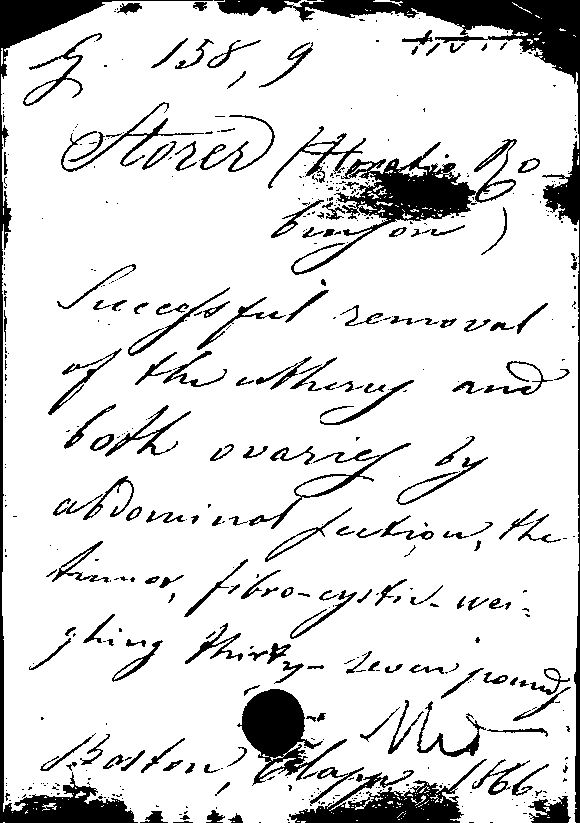 G. 158, 9
Storer (Horatio Ro-
binson)
Successful removal
of the utherus and
both ovaries by
abdominal section, the
tumor, fibro-cystic- wei-
ghing thirty-seven pounds
Boston, Clapp 1866